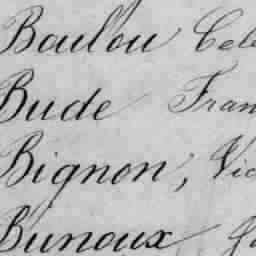 Boulou Cele
Bude Fran
Bignon, Vic
Bunoux